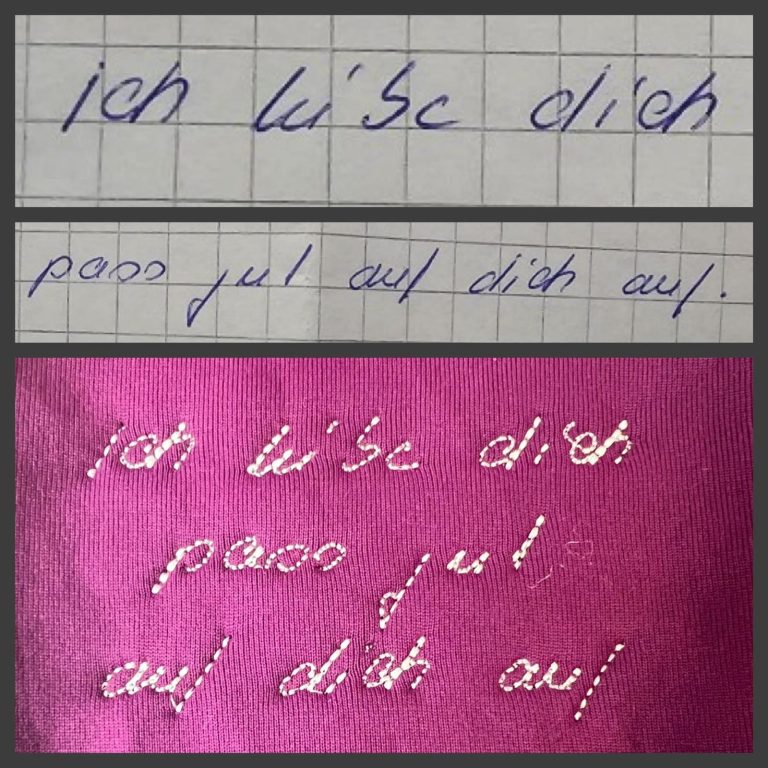 ich liebe dich
pass gut auf dich auf.
ich liebe dich
pass gut
auf dich auf